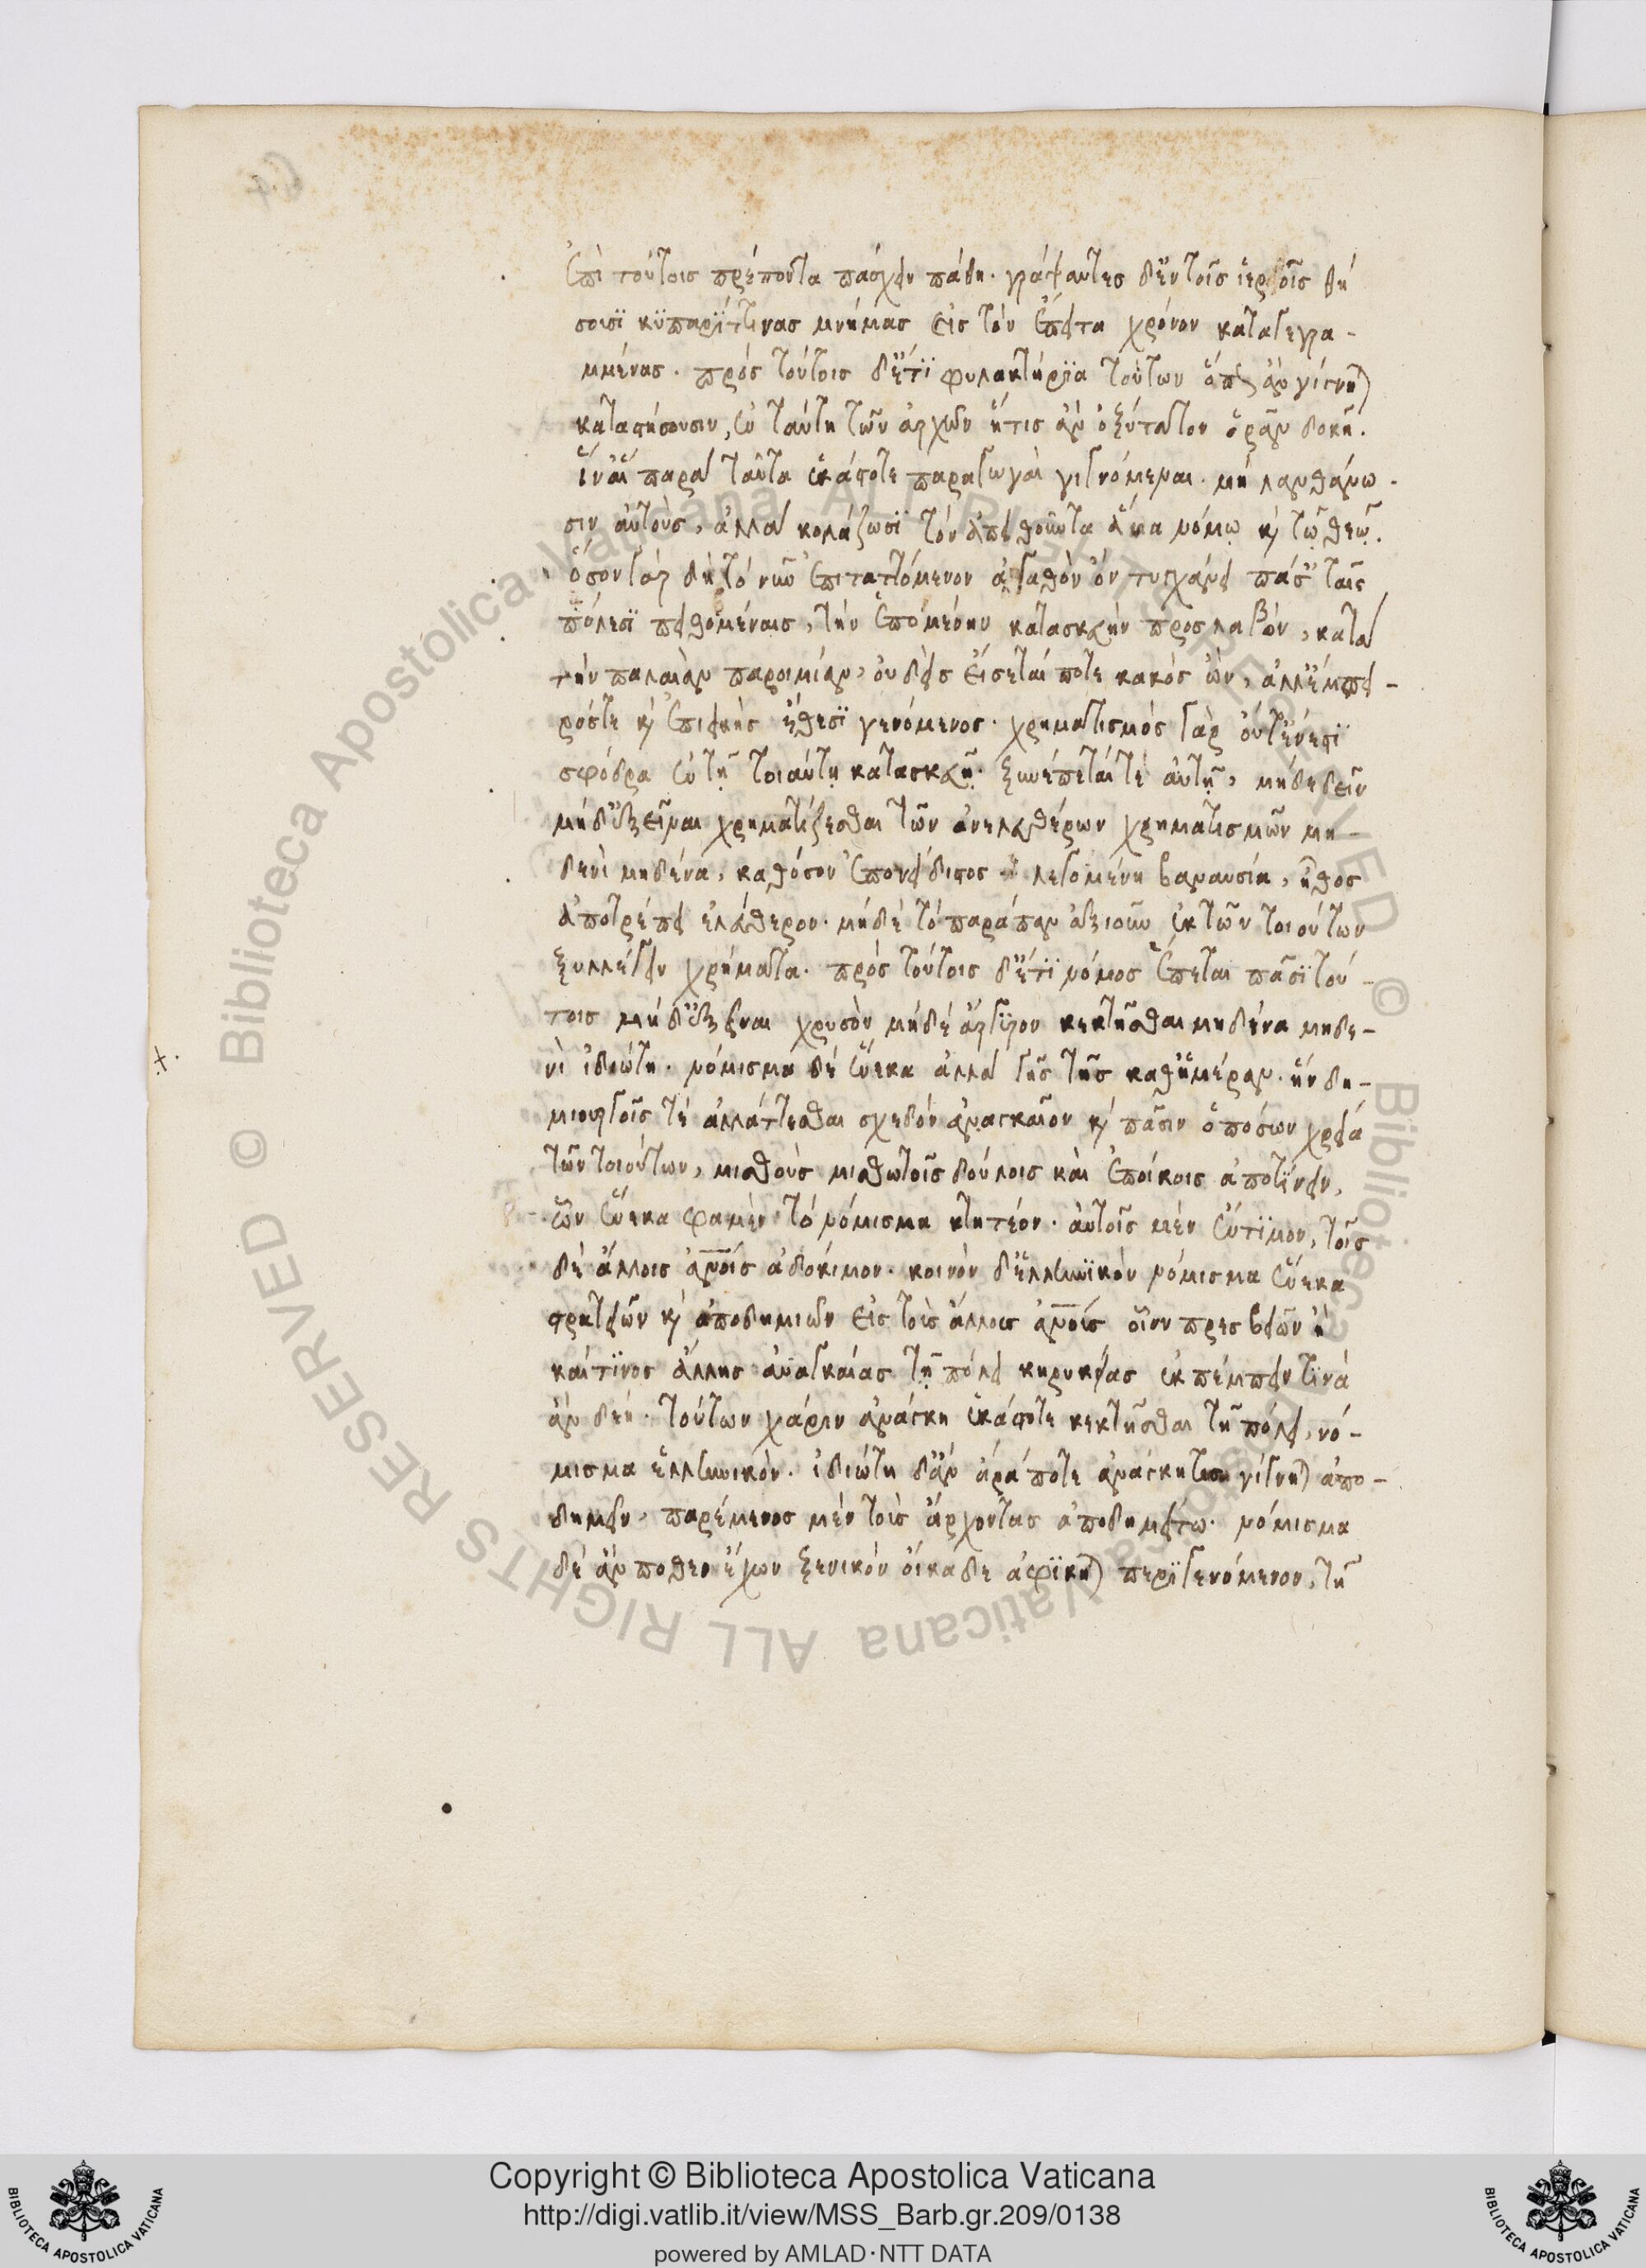 ἐπὶ τούτοις πρέποντα πάσχειν πάθη. γράψαντες δ' ἐν τοῖς ἱεροῖς θή
σουσϊ κϋπαρϊττίνας μνήμας εἰς τὸν ἔπειτα χρόνον καταγεγρα-
μμένας. πρὸς τούτοις δ' ἔτϊ φυλακτήρϊα τούτων ὅπως ἂν γίγνηται
καταστήσουσιν, ἐν ταύτη τῶν ἀρχῶν ἥτις ἂν ὀξύτατον ὁρᾶν δοκῆ.
ἵν' αἱ παρὰ ταῦτα ἑκάστοτε παραγωγαὶ γιγνόμεναι. μὴ λανθάνω-
σιν αὐτοὺς, ἀλλὰ κολάζωσϊ τὸν ἀπειθοῦντα ἅμα νόμῳ κὶ τῷ θεῷ.
ὅσον γὰρ δὴ τὸ νῦν ἐπιταττόμενον ἀγαθὸν ὂν τυγχάνει πάσαις ταῖς
πόλεσϊ πειθομέναις, τὴν ἑπομένην κατασκευὴν προσλαβὸν, κατὰ
τὴν παλαιὰν παροιμίαν, οὐδεὶς εἴσεταί ποτε κακὸς ὢν, ἀλλ' ἔμπει-
ρός τε κὶ ἐπιεικὴς ἔθεσϊ γενόμενος. χρηματισμὸς γὰρ οὔτ' ἔνεστϊ
σφόδρα ἐν τῇ τοιαύτῃ κατασκευῇ. ξυνέπεταί τε αὐτῇ, μήδε δεῖν
μήδ' ἐξεῖναι χρηματίζεσθαι τῶν ἀνελευθέρων χρηματισμῶν μη-
δενὶ μηδένα, καθόσον ἐπονείδιστος λεγομένη βαναυσία, ἦθος
ἀποτρέπει ἐλεύθερον. μήδὲ τὸ παράπαν ἀξιοῦν ἐκ τῶν τοιούτων
ξυλλέγειν χρήματα. πρὸς τούτοις δ' ἔτϊ νόμος ἕπεται πᾶσϊ τού-
τοις μήδ' ἐξεῖναι χρυσὸν μήδὲ ἄργϋρον κεκτῆσθαι μηδένα μηδε-
νὶ ἰδιώτη. νόμισμα δὲ ἕνεκα ἀλλαγῆς τῆς καθ' ἡμέραν. ἣν δη-
μιουργοῖς τὲ ἀλλάττεσθαι σχεδὸν ἀναγκαῖον κὶ πᾶσιν ὁπόσων χρεία
τῶν τοιούτων, μισθοὺς μισθωτοῖς δούλοις καὶ ἐποίκοις ἀποτίνειν,
ὧν ἕνεκα φαμὲν τὸ νόμισμα κτητέον. αὐτοῖς μὲν ἔντϊμον, τοῖς
δὲ ἄλλοις ἀνοις ἀδόκιμον. κοινὸν δ' ἑλληνϊκὸν νόμισμα ἕνεκα
στρατειῶν κὶ ἀποδημιῶν εἰς τοὺς ἄλλους ἀνους οἷον πρεσβειῶν ἢ
καί τϊνος ἄλλης ἀναγκαίας τῇ πόλει κηρυκείας ἐκπέμπειν τϊνὰ
ἂν δέη. τούτων χάριν ἀνάγκη ἑκάστοτε κεκτῆσθαι τῇ πόλει, νό-
μισμα ἑλληνικὸν. ἰδιώτη δ' ἂν ἄρά ποτε ἀνάγκη τις γίγνηται ἀπο-
δημεῖν, παρέμενος μὲν τοὺς ἄρχοντας ἀποδημείτω. νόμισμα
δὲ ἄν ποθεν ἔχων ξενικὸν οἴκαδε ἀφϊκηται περϊγενόμενον, τῇ
Copyright © Biblioteca Apostolica Vaticana
http://digi.vatlib.it/view/MSS_Barb.gr.209/0138
powered by AMLAD·NTT DATA